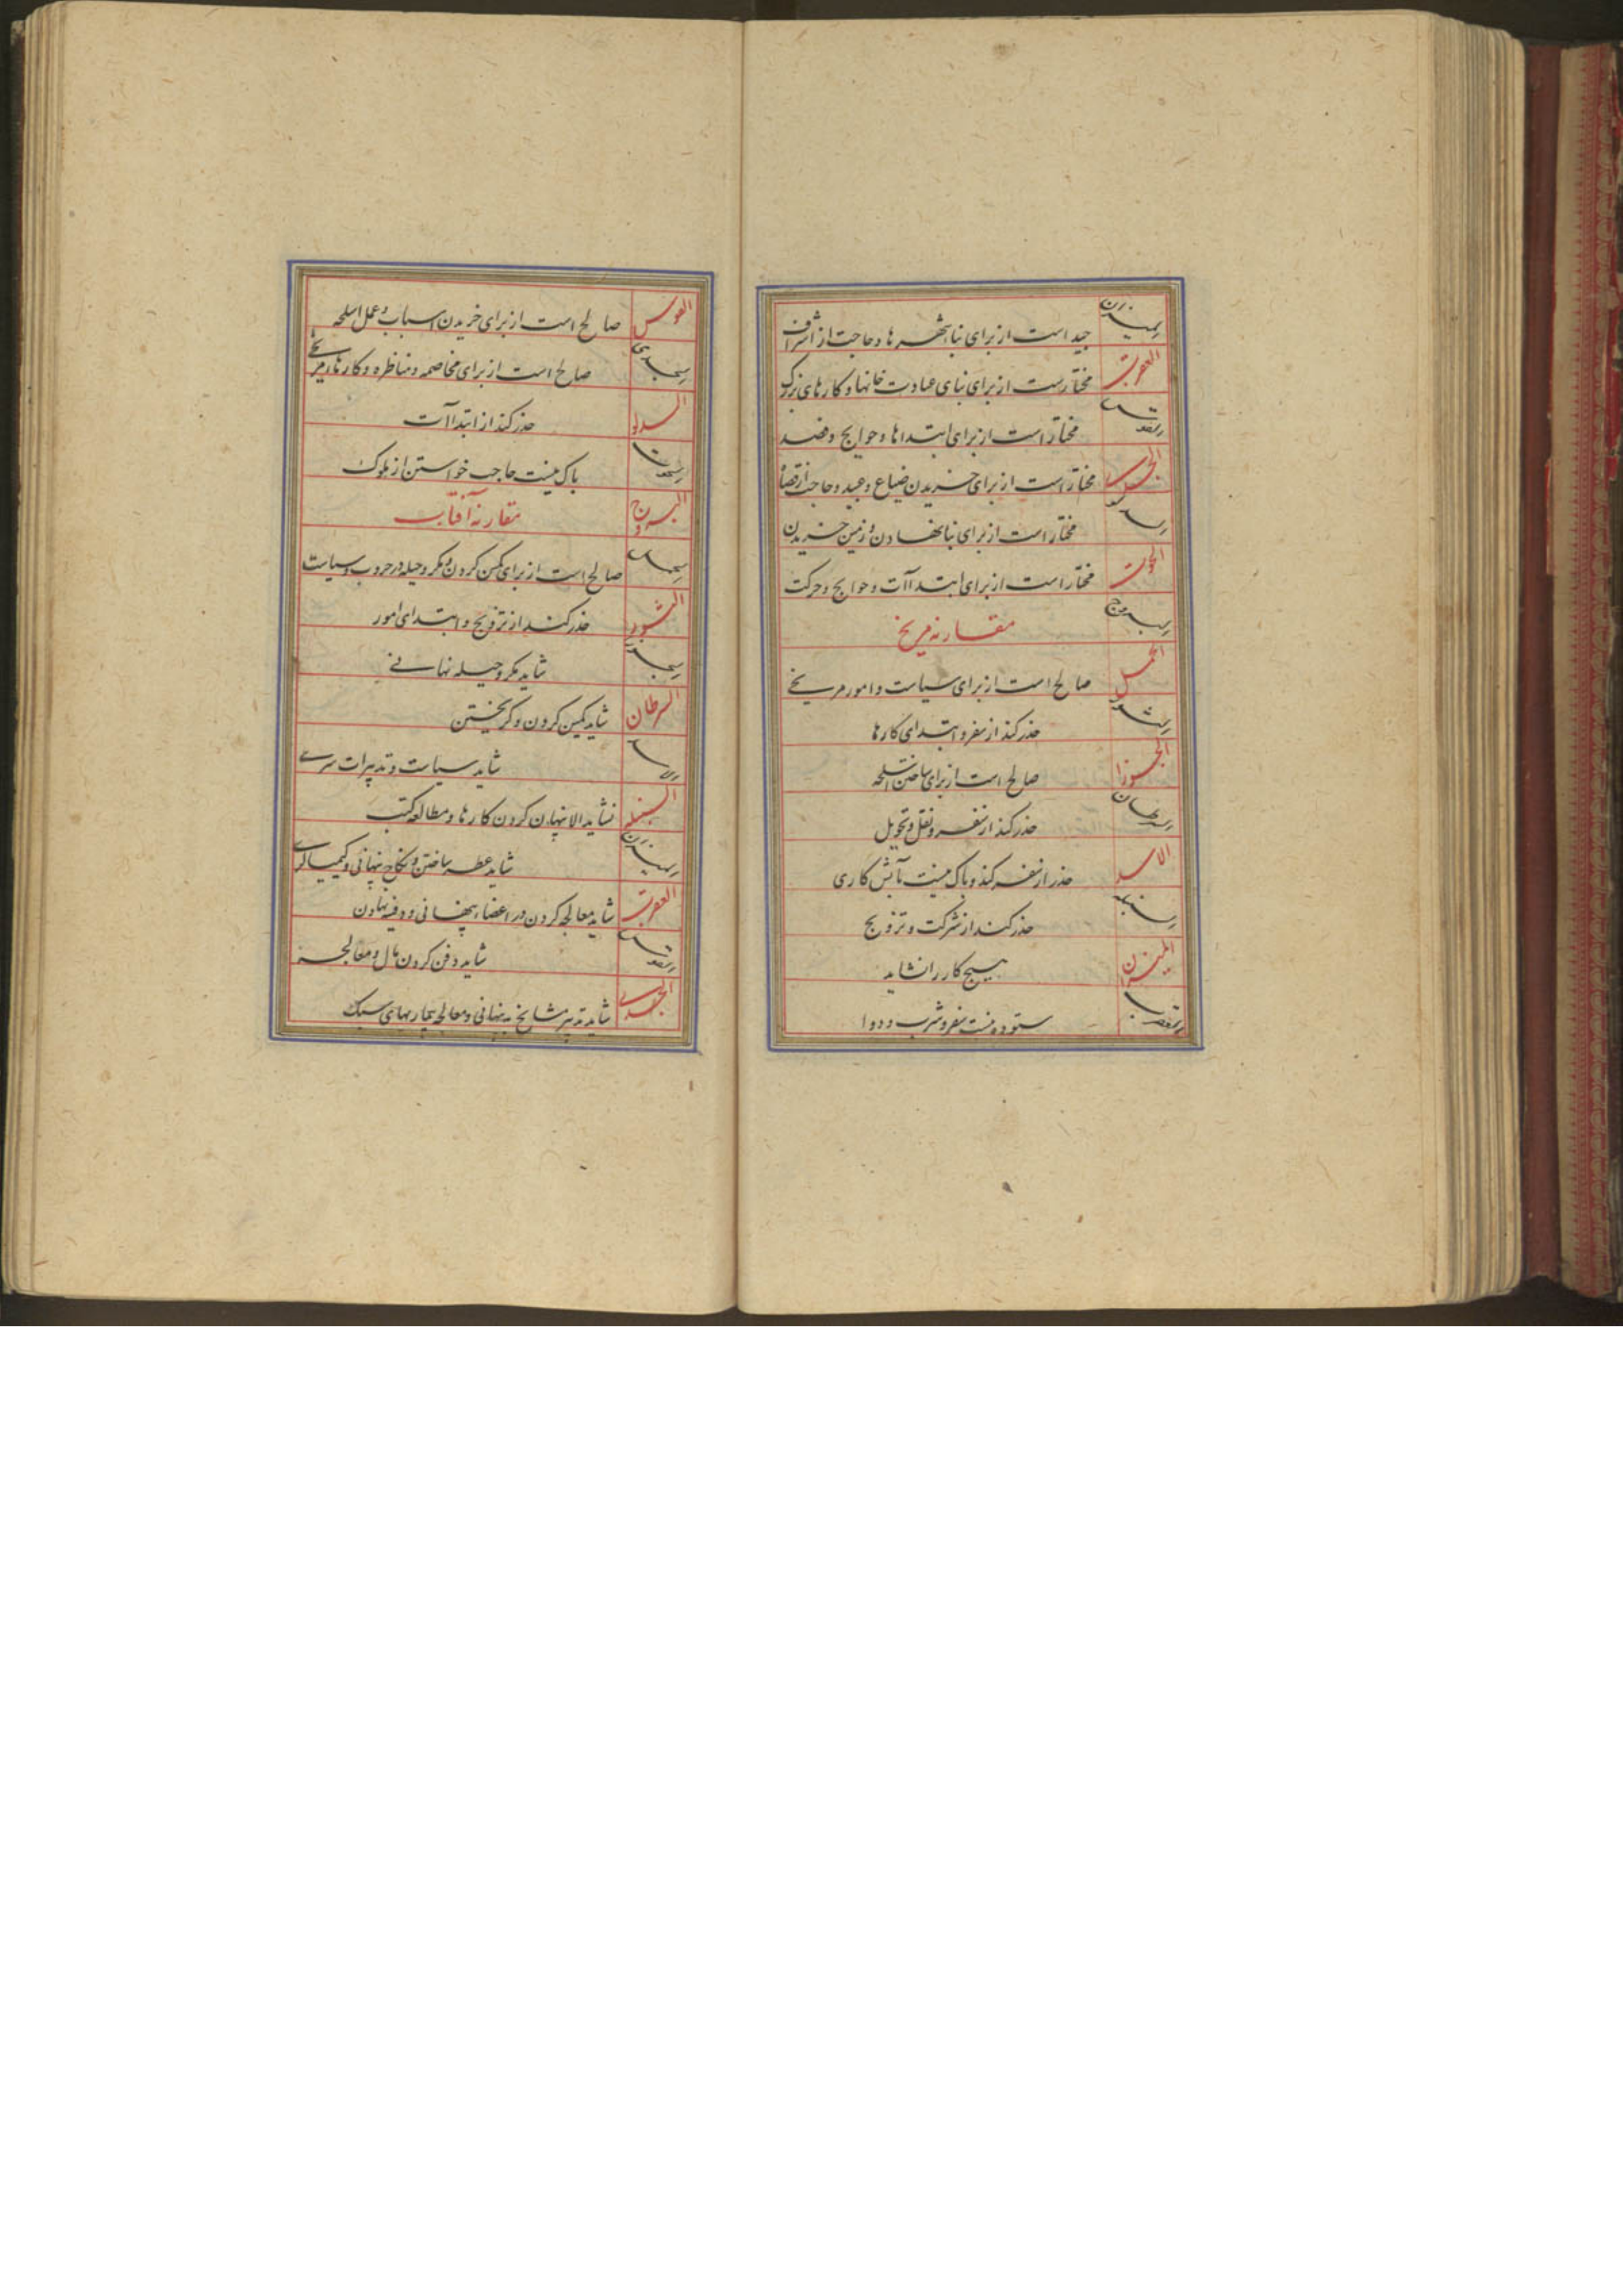 المیزان جید است از برای بنا شهرها و حاجت از اشراف
العقرب مختارست از برای بنای عبادت خانها و کارهای بزرگ
القوس مختار است از برای ابتداها و حوایج و فصد
الجدی مختار است از برای خریدن ضیاع و عبید و حاجت از قضا
الدلو مختار است از برای بنا نهادن و زمین خریدن
الحوت مختار است از برای ابتداآت و حوایج و حرکت
البروج مقارنه مریخ
الحمل صالح است از برای سیاست و امور مریخی
الثور حذر کند از سفر و ابتدای کارها
الجوزا صالح است از برای ساختن اسلحه
السرطان حذر کند از سفر و نقل و تحویل
الاسد حذر از سفر کند و باک نیست بآتش کاری
السنبله حذر کند از شرکت و تزویج
المیزان هیچ کار را نشاید
العقرب ستوده نیست سفر و شرب دوا
القوس صالح است از برای خریدن اسباب و عمل اسلحه
الجدی صالح است از برای مخاصمه و مناظره و کارهاء مریخی
الدلو حذر کند از ابتداآت
الحوت باک نیست حاجب خواستن از ملوک
البروج مقارنه آفتاب
الحمل صالح است از برای کمین کردن و مکر و حیله در حروب و سیاست
الثور حذر کند از تزویج و ابتدای امور
الجوزا شاید مکر و حیله نهانی
السرطان شاید کمین کردن و گریختن
الاسد شاید سیاست و تدبیرات سری
السنبله نشاید الا پنهان کردن کارها و مطالعه کتب
المیزان شاید عطر ساختن و نکاح پنهانی و کیمیاگری
العقرب شاید معالجه کردن در اعضاء پنهانی و دفینه نهادن
القوس شاید دفن کردن مال و معالجه
الجدی شاید تدبیر مشایخ به پنهانی و معالجه بیماریهای سبک